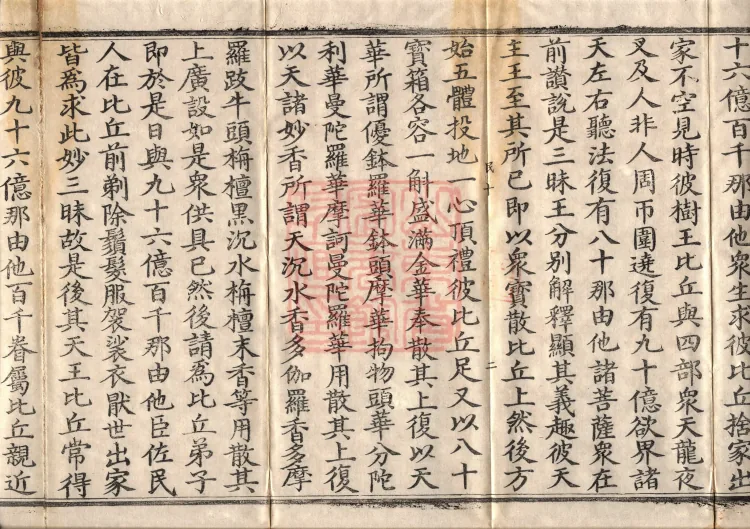 十六億百千那由他衆生求彼比丘捨家出
家不空見時彼樹王比丘與四部衆天龍夜
叉及人非人周帀圍遶復有九十億欲界諸
天左右聽法復有八十那由他諸菩薩衆在
前讃說是三昧王分別解釋顯其義趣彼天
主王至其所已即以衆寶散比丘上然後方
民十 二
始五體投地一心頂禮彼比丘足又以八十
寶箱各容一斛盛滿金華奉散其上復以天
華所謂優鉢羅華鉢頭摩華拘物頭華分陀
利華曼陀羅華摩訶曼陀羅華用散其上復
以天諸妙香所謂天沉水香多伽羅香多摩
羅跋牛頭栴檀黑沉水栴檀末香等用散其
上廣設如是衆供具已然後請爲比丘弟子
即於是日與九十六億百千那由他臣佐民
人在比丘前剃除鬚髮服袈裟衣厭世出家
皆爲求此妙三昧故是後其天王比丘常得
與彼九十六億那由他百千眷屬比丘親近